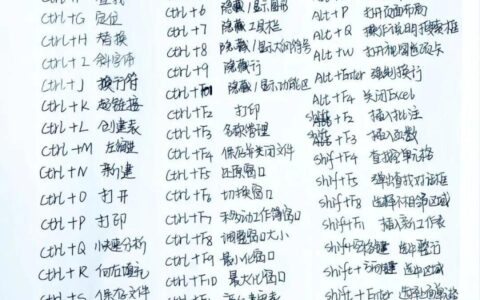 Ctrl+G 定位
Ctrl+H 替换
Ctrl+I 斜字体
Ctrl+J 换行符
Ctrl+K 超链接
Ctrl+L 创建表
Ctrl+M 左缩进
Ctrl+N 新建
Ctrl+O 打开
Ctrl+P 打印
Ctrl+Q 快速分析
Ctrl+R 向右填充
Ctrl+S 保存文件
Ctrl+6 隐藏/显示图形
Ctrl+7 隐藏工具栏
Ctrl+8 隐藏/显示大纲符号
Ctrl+9 隐藏行
隐藏/显示功能区
Ctrl+F2 打印
Ctrl+F3 名称管理
Ctrl+F4 保存并关闭文件
Ctrl+F5 还原窗口
Ctrl+F6 切换窗口
Ctrl+F7 移动工作簿窗口
Ctrl+F8 调整窗口大小
Ctrl+F9 最小化窗口
Ctrl+F10 最大化窗口
Alt+P 打开页面布局
Alt+Q 操作说明搜索框
Alt+W 打开视图选项卡
Alt+Enter 强制换行
Alt+F4 关闭Excel
+F2 插入批注
+F3 插入函数
Shift+F4 查找单元格
Shift+F5 弹出查找对话框
Shift+F8 选择不相邻区域
Shift+F11 插入新工作表
Shift+空格键 选中整行